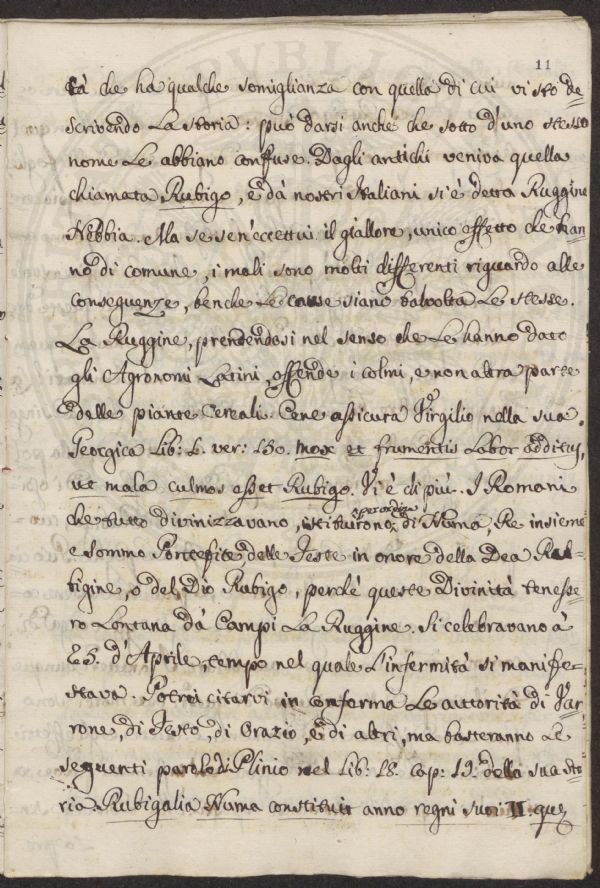 11
tà che ha qualche somiglianza con quella di cui vi sto de=
scrivendo la storia: può darsi anche che sotto d'uno stesso
nome le abbiano confuse. Dagli antichi veniva quella
chiamata Rubigo, e dà nostri Italiani si è detta Ruggine
Nebbia. Ma se sen'eccettui il giallore, unico effetto che han=
no di comune, i mali sono molti differenti riguardo alle
conseguenze, benche le cause siano talvolta le stesse.
La Ruggine, prendendosi nel senso che le hanno dato
gli Agronomi Latini, offende i colmi, e non altra parte
delle piante Cereali. Cene assicura Virgilio nella sua
Georgica Lib: I. ver: 150. mox et frumentis labor additus,
ut mala culmos esset Rubigo. Vi è di più. I Romani
che tutto divinizzavano, istituirono, per ordine di Numa, Re insieme
e sommo Pontefice, delle Feste in onore della Dea Ru=
bigine, o del Dio Rubigo, perchè queste Divinità tenesse=
ro lontana dà Campi la Ruggine. Si celebravano à
25. d'Aprile, tempo nel quale l'infermità si manife=
stava. Potrei citarvi in conferma le autorità di Var=
rone, di Festo, di Orazio, e di altri, ma basteranno le
seguenti parole di Plinio nel Lib: 18. cap: 19. della sua sto=
ria. Rubigalia Numa constituit anno regni sui II. quę